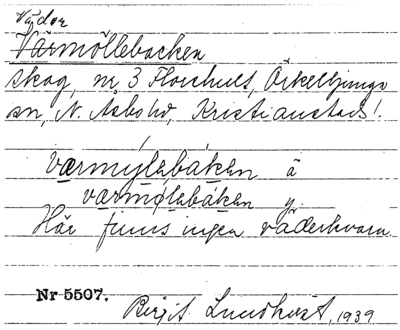 Väder
Värmöllebacken
skog, nr 3 Floshult, Örkelljunga
sn, N. Åsbo hd, Kristianstads l.
værmýlebákən ä
værmø̀lebákən y.
Här finns ingen väderkvarn
Nr 5507.
Birgit Lundqvist, 1939